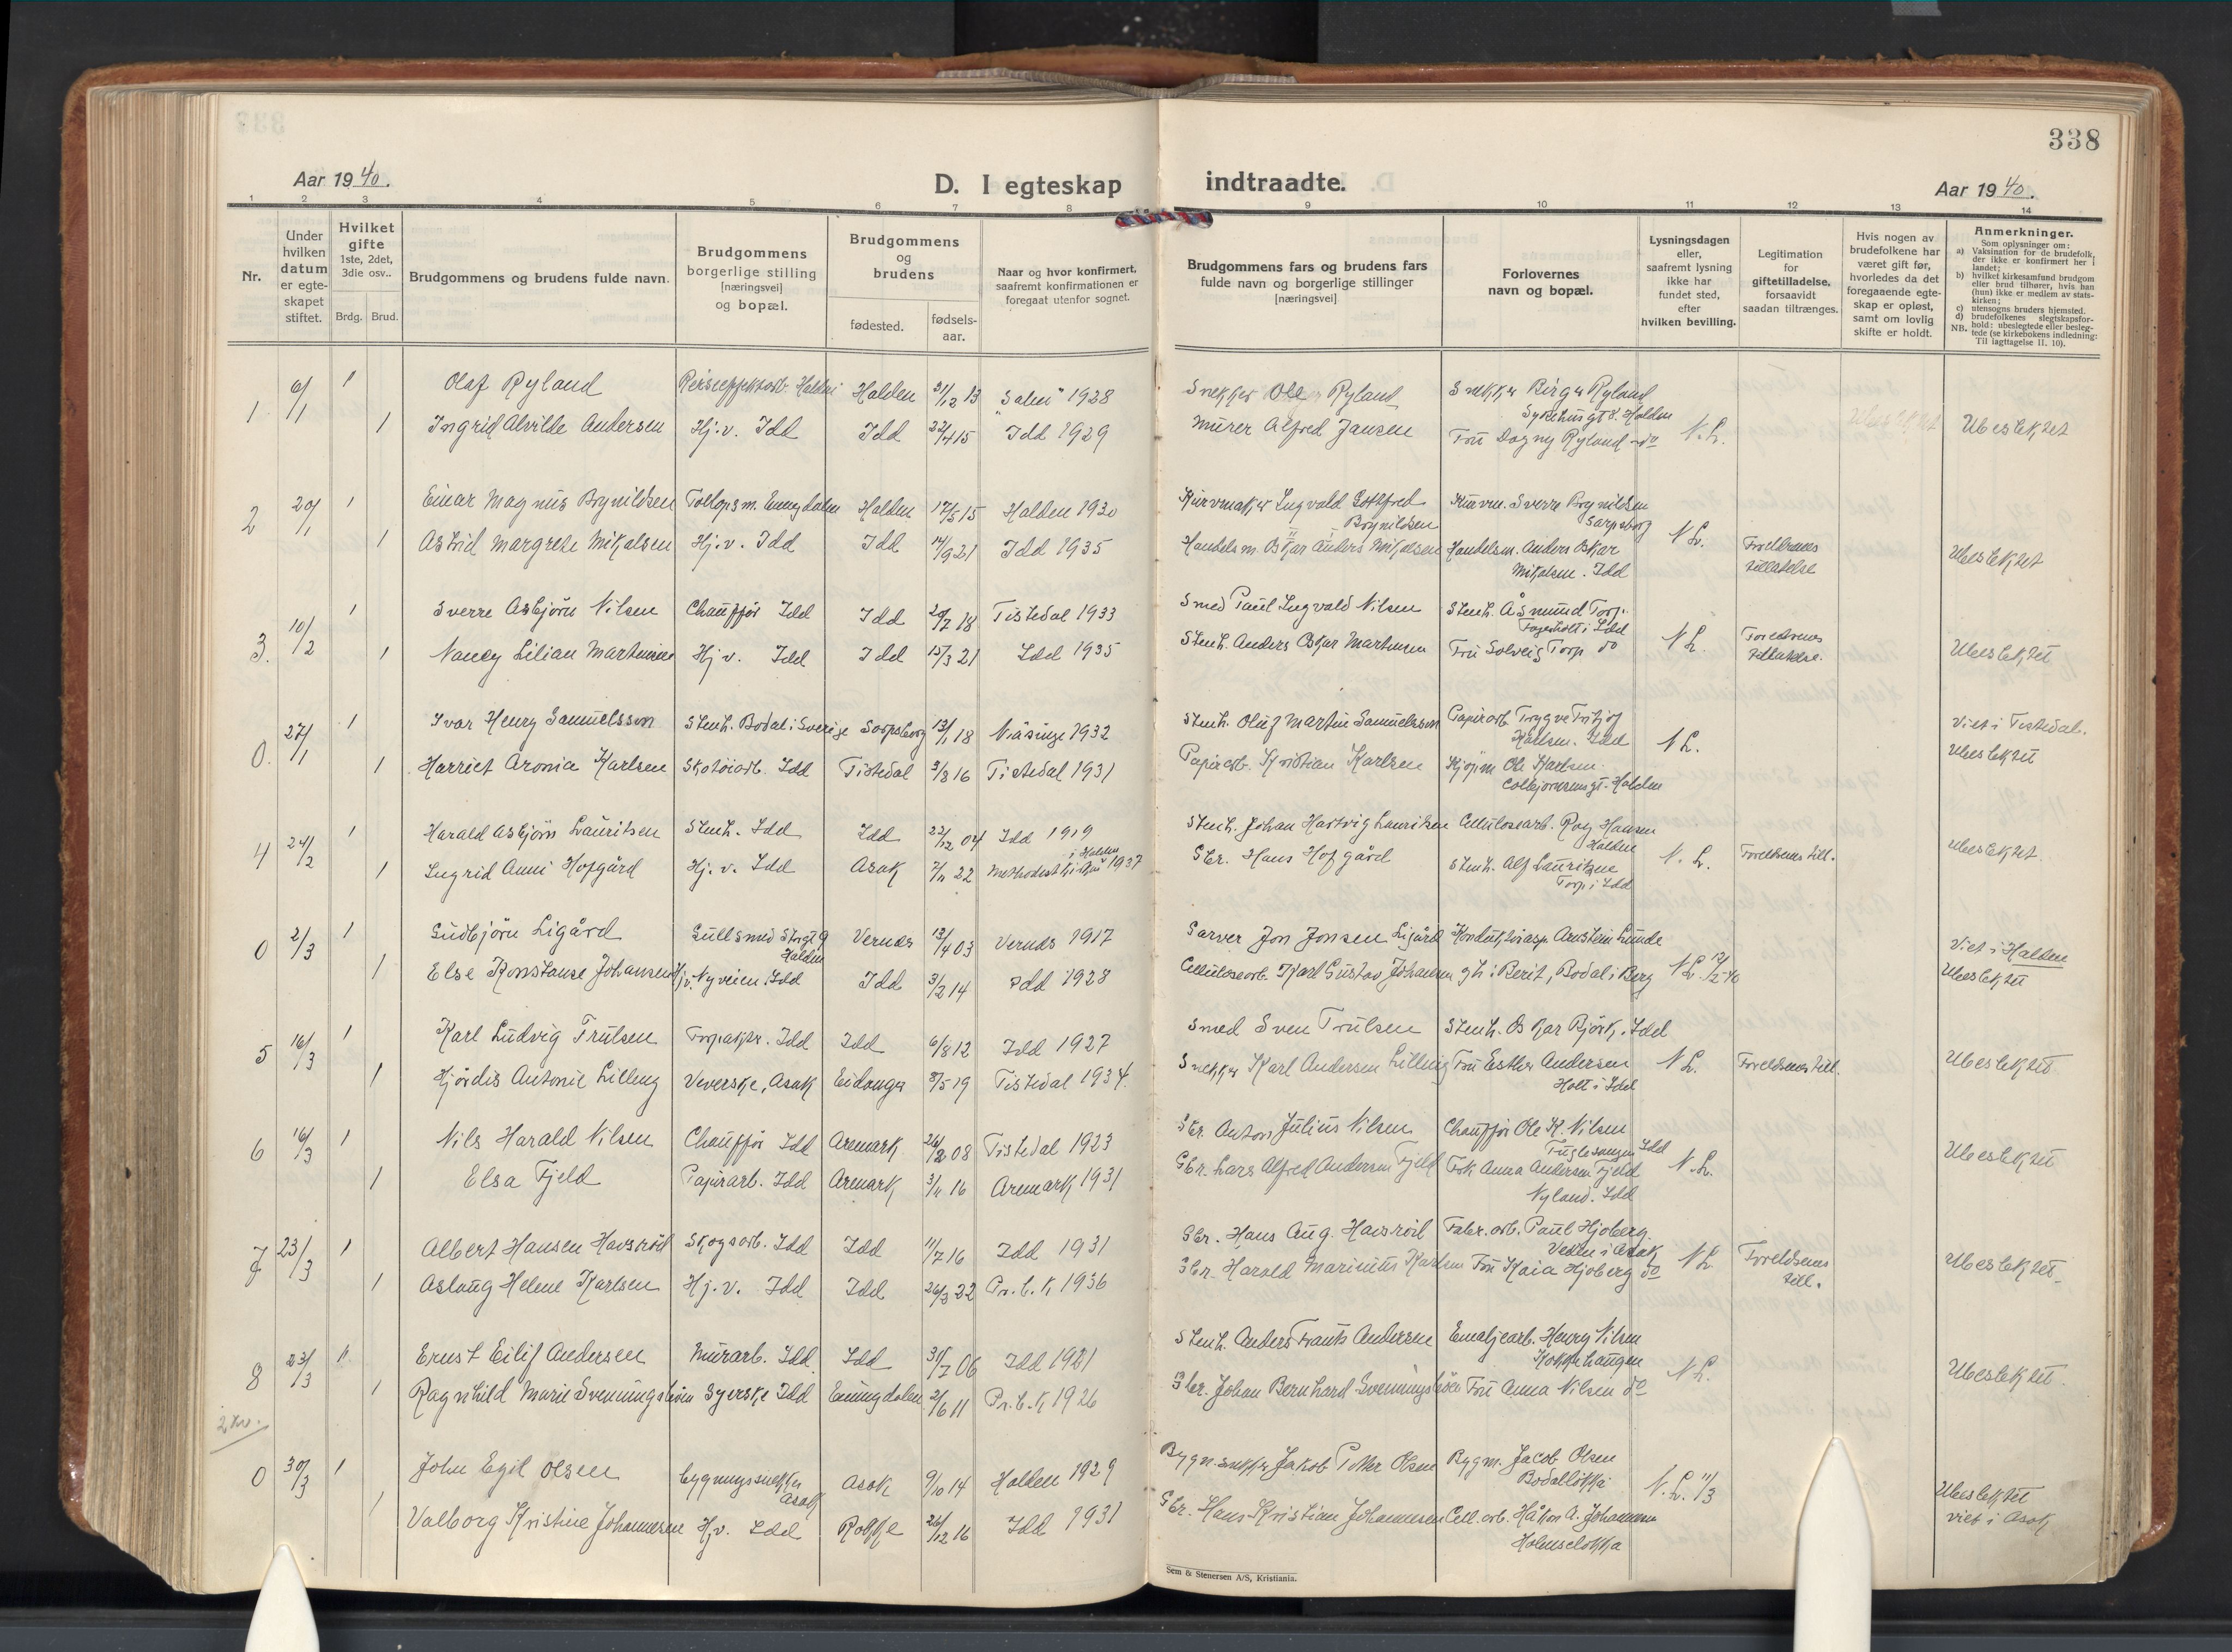 338
Aar 1940.
D. I egteskap indtraadte.
Aar 1940.
1 2 3 4 5 6 7 8 9 10 11 12 13 14
Nr.
Under hvilken datum er egte-skapet stiftet.
Hvilket gifte 1ste, 2det, 3die osv..
Brdg. Brud.
Brudgommens og brudens fulde navn.
Brudgommens borgerlige stilling [næringsvei] og bopæl.
Brudgommens og brudens
fødested. fødsels-aar.
Naar og hvor konfirmert, saafremt konfirmationen er foregaat utenfor sognet.
Brudgommens fars og brudens fars fulde navn og borgerlige stillinger [næringsvei]
Forlovernes navn og bopæl.
Lysningsdagen eller, saafremt lysning ikke har fundet sted, efter hvilken bevilling.
Legitimation for giftetilladelse, forsaavidt saadan tiltrænges.
Hvis nogen av brudefolkene har været gift før, hvorledes da det foregaaende egte-skap er opløst, samt om lovlig skifte er holdt.
Anmerkninger.
Som oplysninger om:
a) Vaksination for de brudefolk, der ikke er konfirmert her i landet;
b) hvilket kirkesamfund brudgom eller brud tilhører, hvis han (hun) ikke er medlem av stats-kirken;
c) utensogns bruders hjemsted.
d) brudefolkenes slegtskapsfor-hold: ubeslegtede eller besleg-tede (se kirkebokens indledning: Til iagttagelse II. 10).
NB.
1 6/1 1 Olaf Ryland Halden 21/12 13 "Salen" 1928 Snekker Ole Ryland Snekker Birger Ryland
Sykehusgt 8. Halden
1 Ingrid Alvilde Andersen Hj.v. Idd Idd 22/4 15 Idd 1929 Murer Alfred Jansen Fru Dagny Ryland do N.L. Ubeslektet
2 20/1 1 Einar Magnus Brynildsen Tollopsm. Enningdalen Halden 17/5 15 Halden 1930 Kurvmaker Ingvald Gottfred Brynildsen Kurvm. Sverre Brynildsen Sarpsborg
1 Astrid Margrethe Mikalsen Hj.v. Idd Idd 14/9 21 Idd 1935 Handelsm. Oskar Anders Mikalsen Handelsm. Anders Oskar Mikalsen. Idd N.L. Foreldrenes tillatelse Ubeslektet
3. 10/2 1 Sverre Asbjörn Nilsen Chauffør Idd Idd 20/7 18 Tistedal 1933 Smed Paul Ingvald Nilsen Stenh. Åsmund Torp. Fagerholt i Idd
1 Nancy Lilian Martinsen Hj.v. Idd Idd 15/3 21 Idd 1935 Stenh. Anders Oskar Martinsen Fru Solveig Torp do N.L. Foreldrenes tillatelse. Ubeslektet
0. 27/1 1 Ivar Henry Samuelsson Stenh. Bodal i Sverige Sarpsborg 13/1 18 Näsinge 1932 Stenh. Oluf Martin Samuelsson Papirarb. Trygve Fritjof Karlsen. Idd Viet i Tistedal.
1 Harriet Aronia Karlsen Skotöiarb. Idd Tistedal 3/8 16 Tistedal 1931 Papirarb. Kristian Karlsen Kjöpm Ole Karlsen. Colbjørnsensgt. Halden N.L. Ubeslektet
4 24/2 1 Harald Asbjörn Lauritsen Stenh. Idd Idd 22/12 04 Idd 1919 Stenh. Johan Hartvig Lauritsen Cellulosearb. Roy Hansen Halden
1 Ingrid Anni Hofgård Hj.v. Idd Asak 7/11 22 1937 i Halden Gbr. Hans Hofgård Stenh. Alf Lauritsen Torp i Idd N.L. Foreldrenes till. Ubeslektet.
0 2/3 1 Gudbjörn Ligård Gullsmed Storgt 9 Halden Vernes 13/4 03 Vernes 1917 Garver Jon Jonsen Ligård Konduktörasp. Arnstein Lunde Viet i Halden
1 Else Konstanse Johansen Hj.v. Nyveien. Idd Idd 3/2 14 Idd 1928 Cellulosearb. Karl Gustav Johansen Bodal i Berg N.L. 12/2 40 Ubeslektet
5 16/3 1 Karl Ludvig Trulsen Idd Idd 6/8 12 Idd 1927 Smed Sven Trulsen Stenh. Oskar Björk. Idd
1 Hjördis Antonie Lilleng Veverske, Asak Eidanger 8/5 19 Tistedal 1934. Snekker Karl Andersen Lilleng Fru Esther Andersen Holt i Idd N.L. Foreldrenes till. Ubeslektet
6 16/3 1 Nils Harald Nilsen Chauffør Idd Aremark 26/2 08 Tistedal 1923 Gbr. Anton Julius Nilsen Chauffør Ole K. Nilsen Fuglesangen Idd
1 Elsa Fjeld Papirarb. Idd Aremark 3/11 16 Aremark 1931 Gbr. Lars Alfred Andersen Fjeld Frk Anna Andersen Fjeld Nyland. Idd N.L. Ubeslektet
7 23/3 1 Albert Hansen Havsröd Skogsarb. Idd Idd 11/7 16 Idd 1931 Gbr. Hans Aug. Havsröd Fabr.arb. Paul Hjoberg. Veden i Asak
1 Aslaug Helene Karlsen Hj.v. Idd Idd 26/3 22 Pr.b.k 1936 Gbr. Harald Marinius Karlsen Fru Kaia Hjoberg do N.L. Foreldrenes till. Ubeslektet
8 23/3 11 Ernst Eilif Andersen Murarb. Idd Idd 31/7 06 Idd 1921 Stenh. Anders Frants Andersen Emaljearb. Henry Nilsen Kokkehaugen
1 Ragnhild Marie Svenningsbøen Syerske Idd Enningdalen 2/6 11 Pr.b.k 1926 Gbr. Johan Bernhard Svenningsbøen Fru Anna Nilsen do N.L. Ubeslektet.
0 30/3 1 John Egil Olsen bygningssnekker Asak Asak 9/10 14 Halden 1929 Bygn.snekker Jakob Petter Olsen Bygm. Jacob Olsen Bodalløkka
1 Valborg Kristine Johannesen Hj.v. Idd Rokke 26/12 16 Idd 1931 Gbr. Hans Kristian Johannesen Cell.arb. Håkon A. Johannesen Holmseløkka N.L. 11/3 Ubeslektet viet i Asak
Sem & Stenersen A/S, Kristiania.